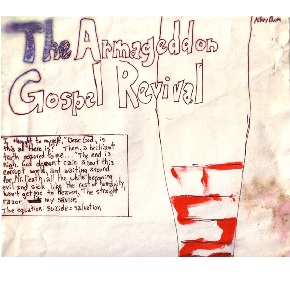 The Armageddon
Gospel Revival
"I thought to myself, "Dear God, is
this all there is?" Then, a brilliant
truth occured to me... "The end is
nigh. God doesn't care about this
corrupt world, and waiting around
for Mr. Death, all the while becoming
evil and sick like the rest of humanity,
won't get me to Heaven. The straight
razor my savior.
The equation: Suicide = salvation